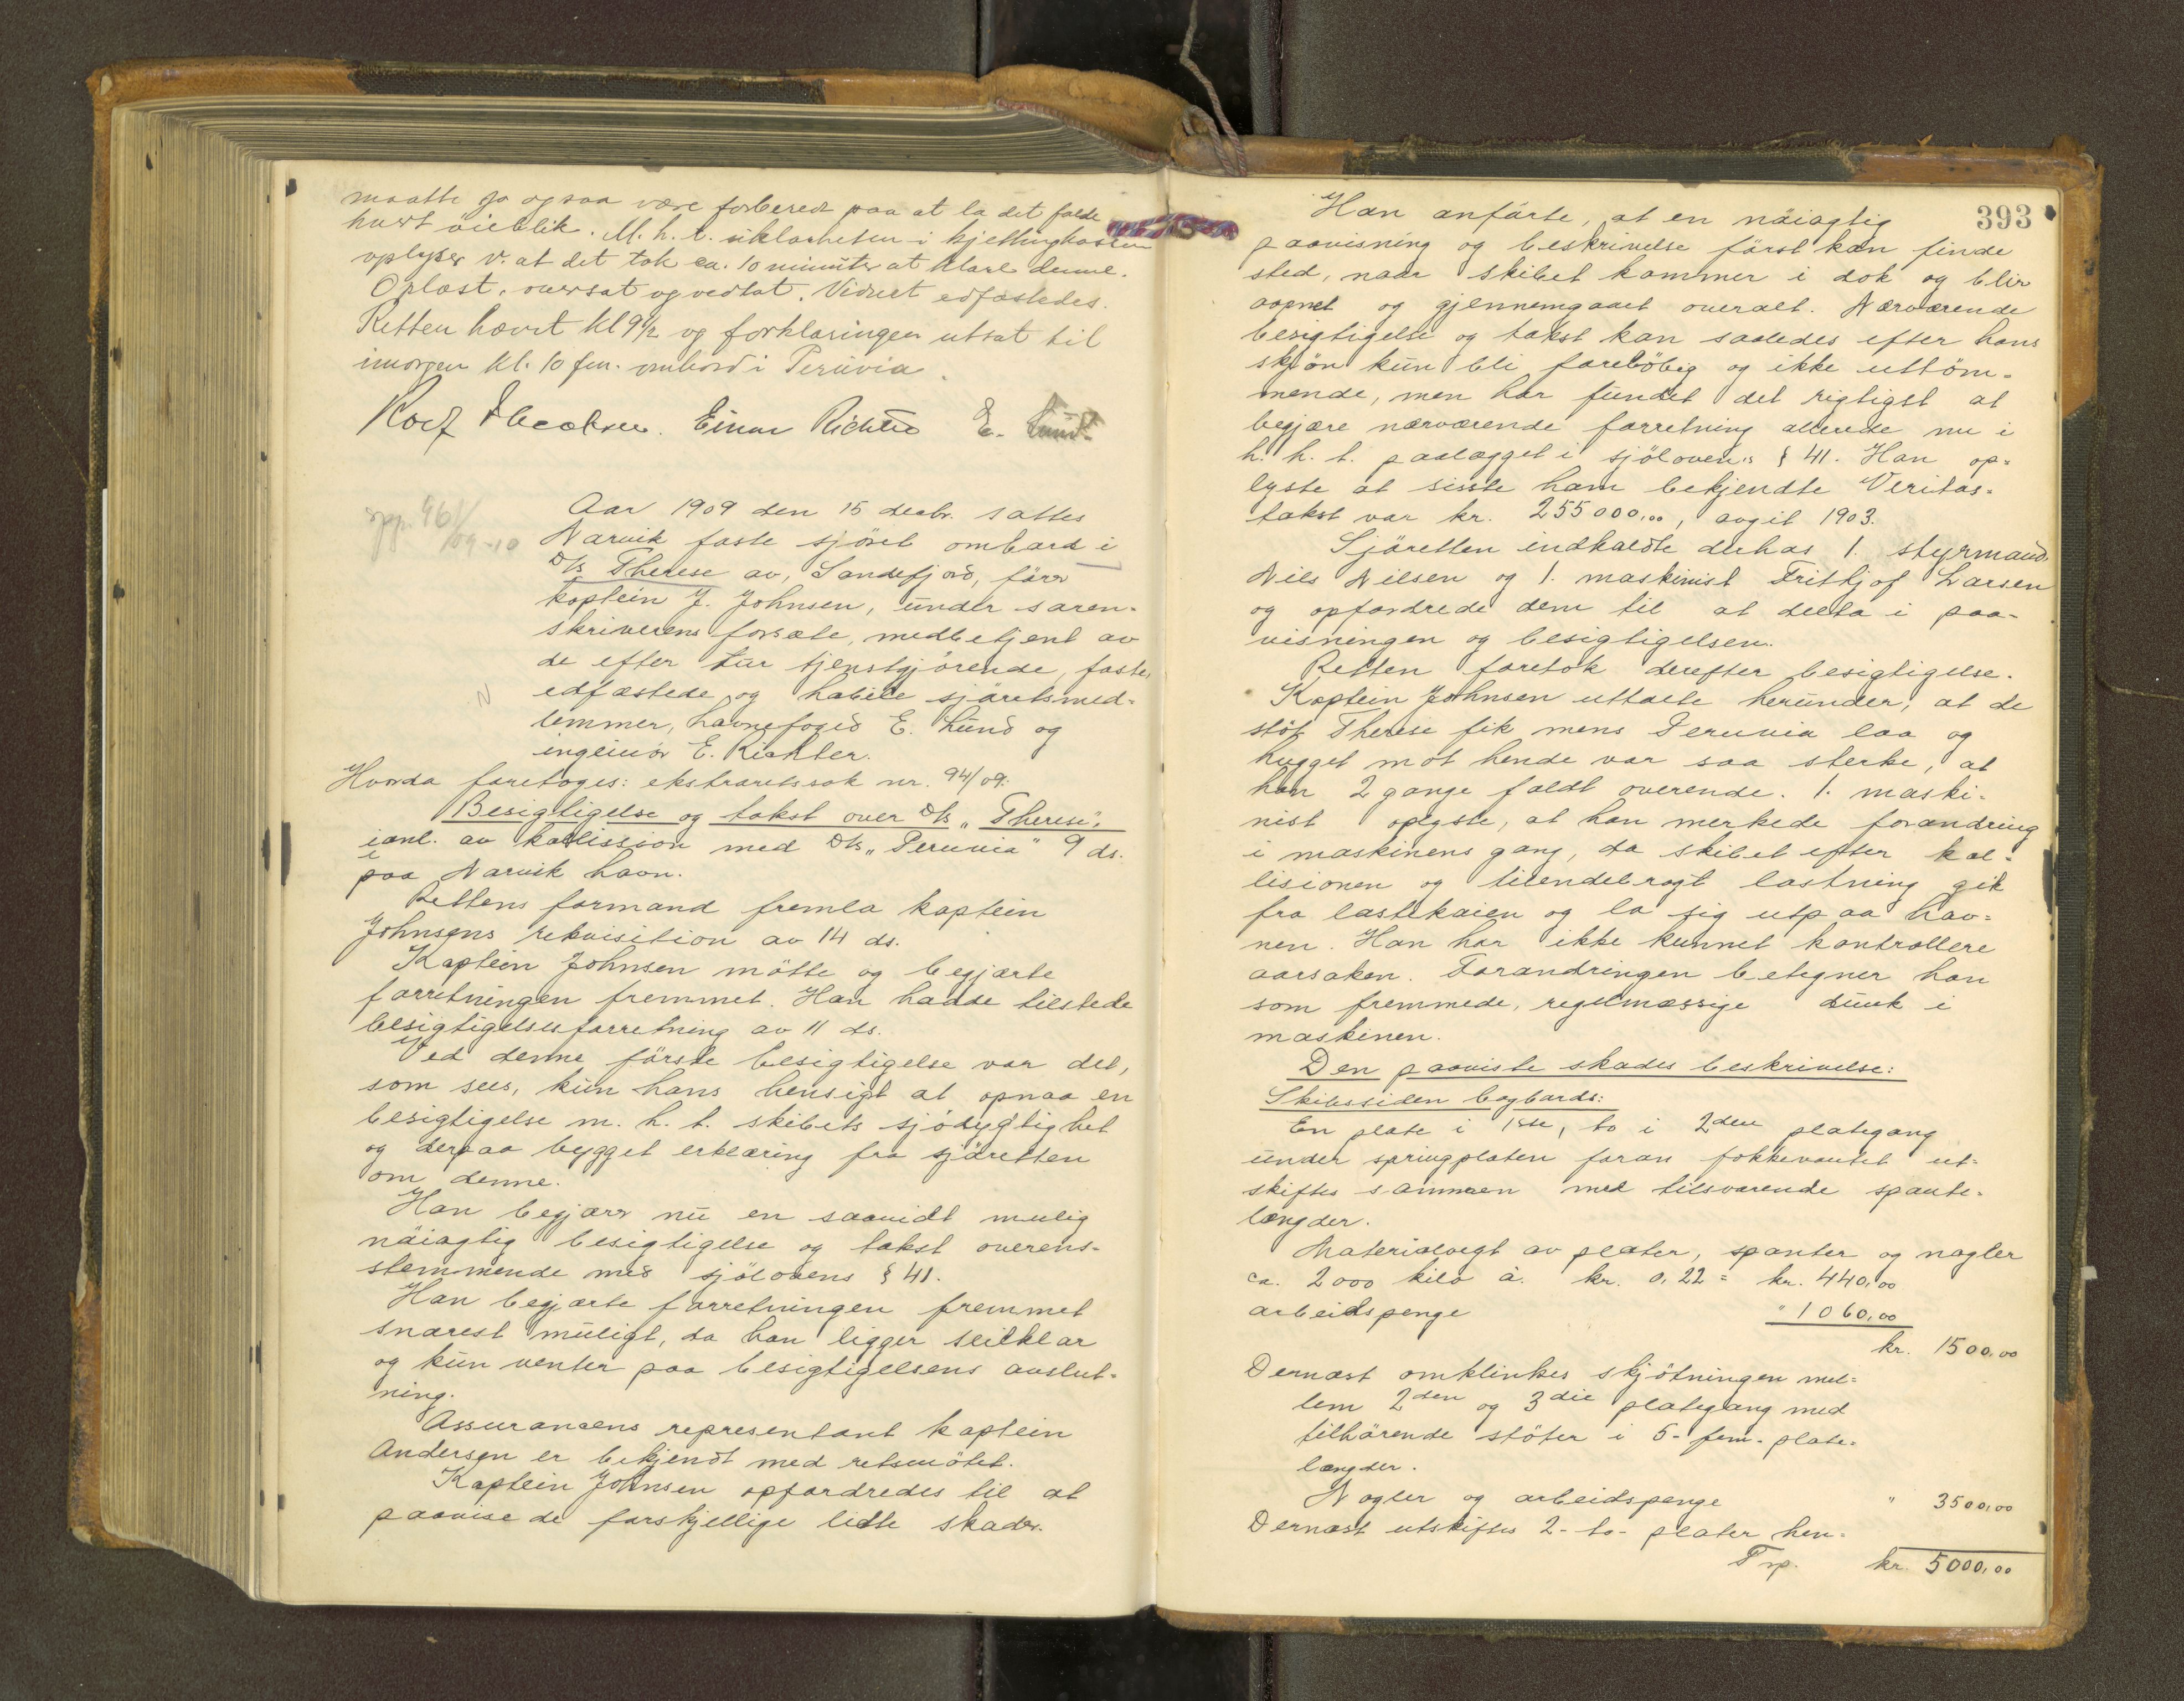 maatte jo ogsaa være forberedt paa at la det falde
hvert öieblik. M. h. t. uklarheten i kjettingkassen
oplyser v. at det tok ca. 10 minuter at klare denne.
Oplæst, oversat og vedtat. Vidnet edfæstedes.
Retten hævet kl 9 1/2 og forklaringen utsat til
imorgen kl. 10 fm. ombord i Peruvia.
Einar Richter E. Lund
961/
09-10
Aar 1909 den 15 decbr. sattes
Narvik faste sjöret ombord i
D/s Therese av, Sandefjord, förer
kaptein J. Johnsen, under soren-
skriverens forsæte, medbetjent av
de efter tur tjenstgjörende, faste,
edfæstede og habile sjöretsmed-
lemmer, havnefoged E. Lund og
ingeniör E. Richter.
Hvorda foretoges: ekstraretssak nr. 94/09:
Besigtigelse og takst over D/s "Therese",
i anl. av kollission med D/s "Peruvia" 9 ds.
i
paa Narvik havn.
Rettens formand fremla kaptein
Johnsens rekvisition av 14 ds.
Kaptein Johnsen mötte og begjærte
forretningen fremmet. Han hadde tilstede
besigtigelsesforretning av 11 ds.
Ved denne förste besigtigelse var det,
som sees, kun hans hensigt at opnaa en
besigtigelse m. h. t. skibets sjödygtighet
og derpaa bygget erklæring fra sjöretten
om denne.
Han begjærer nu en saavidt mulig
nöiagtig besigtigelse og takst overens-
stemmende med sjölovens § 41.
Han begjærte forretningen fremmet
snarest muligt, da han ligger seilklar
og kun venter paa besigtigelsens avslut-
ning.
Assurancens representant kaptein
Andersen er bekjendt med retsmötet.
Kaptein Johnsen opfordredes til at
paavise de forskjellige lidte skader.
393
Han anförte, at en nöiagtig
paavisning og beskrivelse först kan finde
sted, naar skibet kommer i dok og blir
aapnet og gjennemgaaet overalt. Nærværende
besigtigelse og takst kan saaledes efter hans
skjön kun bli forelöbig og ikke uttöm-
mende, men har fundet det rigtigst at
begjære nærværende forretning allerede nu i
h. h. t. paalægget i sjöloven's § 41. Han op-
lyste at sisste ham bekjendte Veritas-
takst var kr. 255000,00, avgit 1903.
Sjöretten indkaldte derhos 1. styrmand
Nils Nilsen og 1. maskinist Frithjof Larsen
og opfordrede dem til at delta i paa-
visningen og besigtigelsen.
Retten foretok derefter besigtigelse.
Kaptein Johnsen uttalte herunder, at de
stöt Therese fik mens Peruvia laa og
hugget mot hende var saa sterke, at
han 2 gange faldt overende. 1. maski-
nist oplyste, at han merkede forandring
i maskinens gang, da skibet efter kol-
lisionen og tilendebragt lastning gik
fra lastekaien og la sig utpaa hav-
nen. Han har ikke kunnet kontrollere
aarsaken. Forandringen betegner han
som fremmede, regelmæssige dunk i
maskinen.
Den paaviste skades beskrivelse:
Skibssiden bagbords:
En plate i 1ste, to i 2den plategang
under springplaten foran fokkevantet ut-
skiftes sammen med tilsvarende spante-
længder.
Materialvegt av plater, spanter og nagler
ca. 2000 kilo à. kr. 0,22 = kr. 440,00
arbeidspenge " 1060,00
kr. 1500,00
Dernæst omklinkes skjötningen mel-
lem 2den og 3die plategang med
tilhörende stöter i 5- fem- plate-
længder.
Nagler og arbeidspenge " 3500,00
Dernæst utskiftes 2- to- plater hen-
Trp. kr. 5000,00